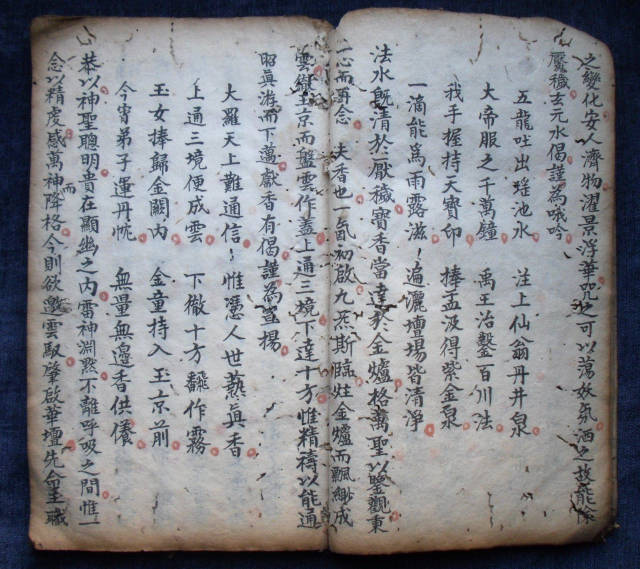 之變化安人濟物濯景浮華咒之可以蕩妖氛洒之故能除
厭穢玄元水偈謹為哦吟
五龍吐出瑤池水 注上仙翁丹井泉
大帝服之千萬鍾 禹王治鑿百川法
我手握持天寶印 捧盂汲得紫金泉
一滴能為雨露滋 遍灑壇場皆清淨
法水既清於厭穢寶香當達於金爐格萬聖以鑒觀東
一心而 念 夫香也一氣初啟九炁斯臨炷金爐而飄緲成
雲繞玉京而盤雲作蓋上通三境下達十方惟精禱以能通
昭真游而下邁獻香有偈謹為宣揚
大羅天上難通信 惟憑人世爇真香
上通三境便成雲 下徹十方翻作霧
玉女捧歸金闕內 金童持入玉京前
今宵弟子運丹忱 無量無邊香供養
恭以神聖聰明貴在顯幽之內雷神淵默不離呼吸之間惟一
念以精虔感萬神而降格今則欲邀雲馭肇啟華壇先命玉職